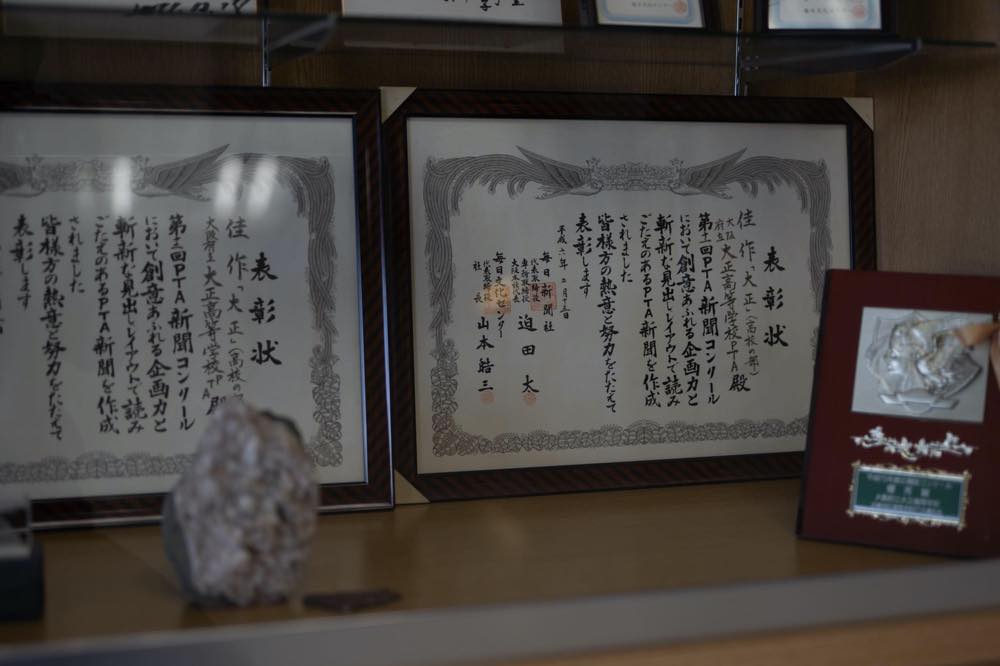 表彰状
佳作「大正」(高校の部)
大阪府立大正高等学校PTA殿
PTA新聞コンクール
において創意あふれる企画力と
斬新な見出しレイアウトで読み
ごたえのあるPTA新聞を作成
されました
皆様方の熱意と努力をたたえて
表彰します
表彰状
佳作「大正」(高校の部)
大阪府立大正高等学校PTA殿
PTA新聞コンクール
において創意あふれる企画力と
斬新な見出しレイアウトで読み
ごたえのあるPTA新聞を作成
されました
皆様方の熱意と努力をたたえて
表彰します
平成六年二月十三日
毎日新聞社
代表取締役
専務取締役
大阪本社代表
迫田太
毎日文化センター
代表取締役
社長
山本皓三